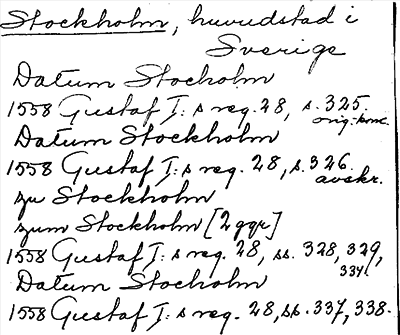 Stockholm, huvudstad i
Sverige
Datum Stocholm
1558 Gustaf I: s reg. 28, s. 325.
orig.-konc.
Datum Stockholm
1558 Gustaf I: s reg. 28, s. 326.
avskr.
zu Stockholm
zum Stockholm [2 ggr]
1558 Gustaf I: s reg. 28, ss. 328, 329,
334.
Datum Stocholm
1558 Gustaf I: s reg. 28, ss. 337, 338.